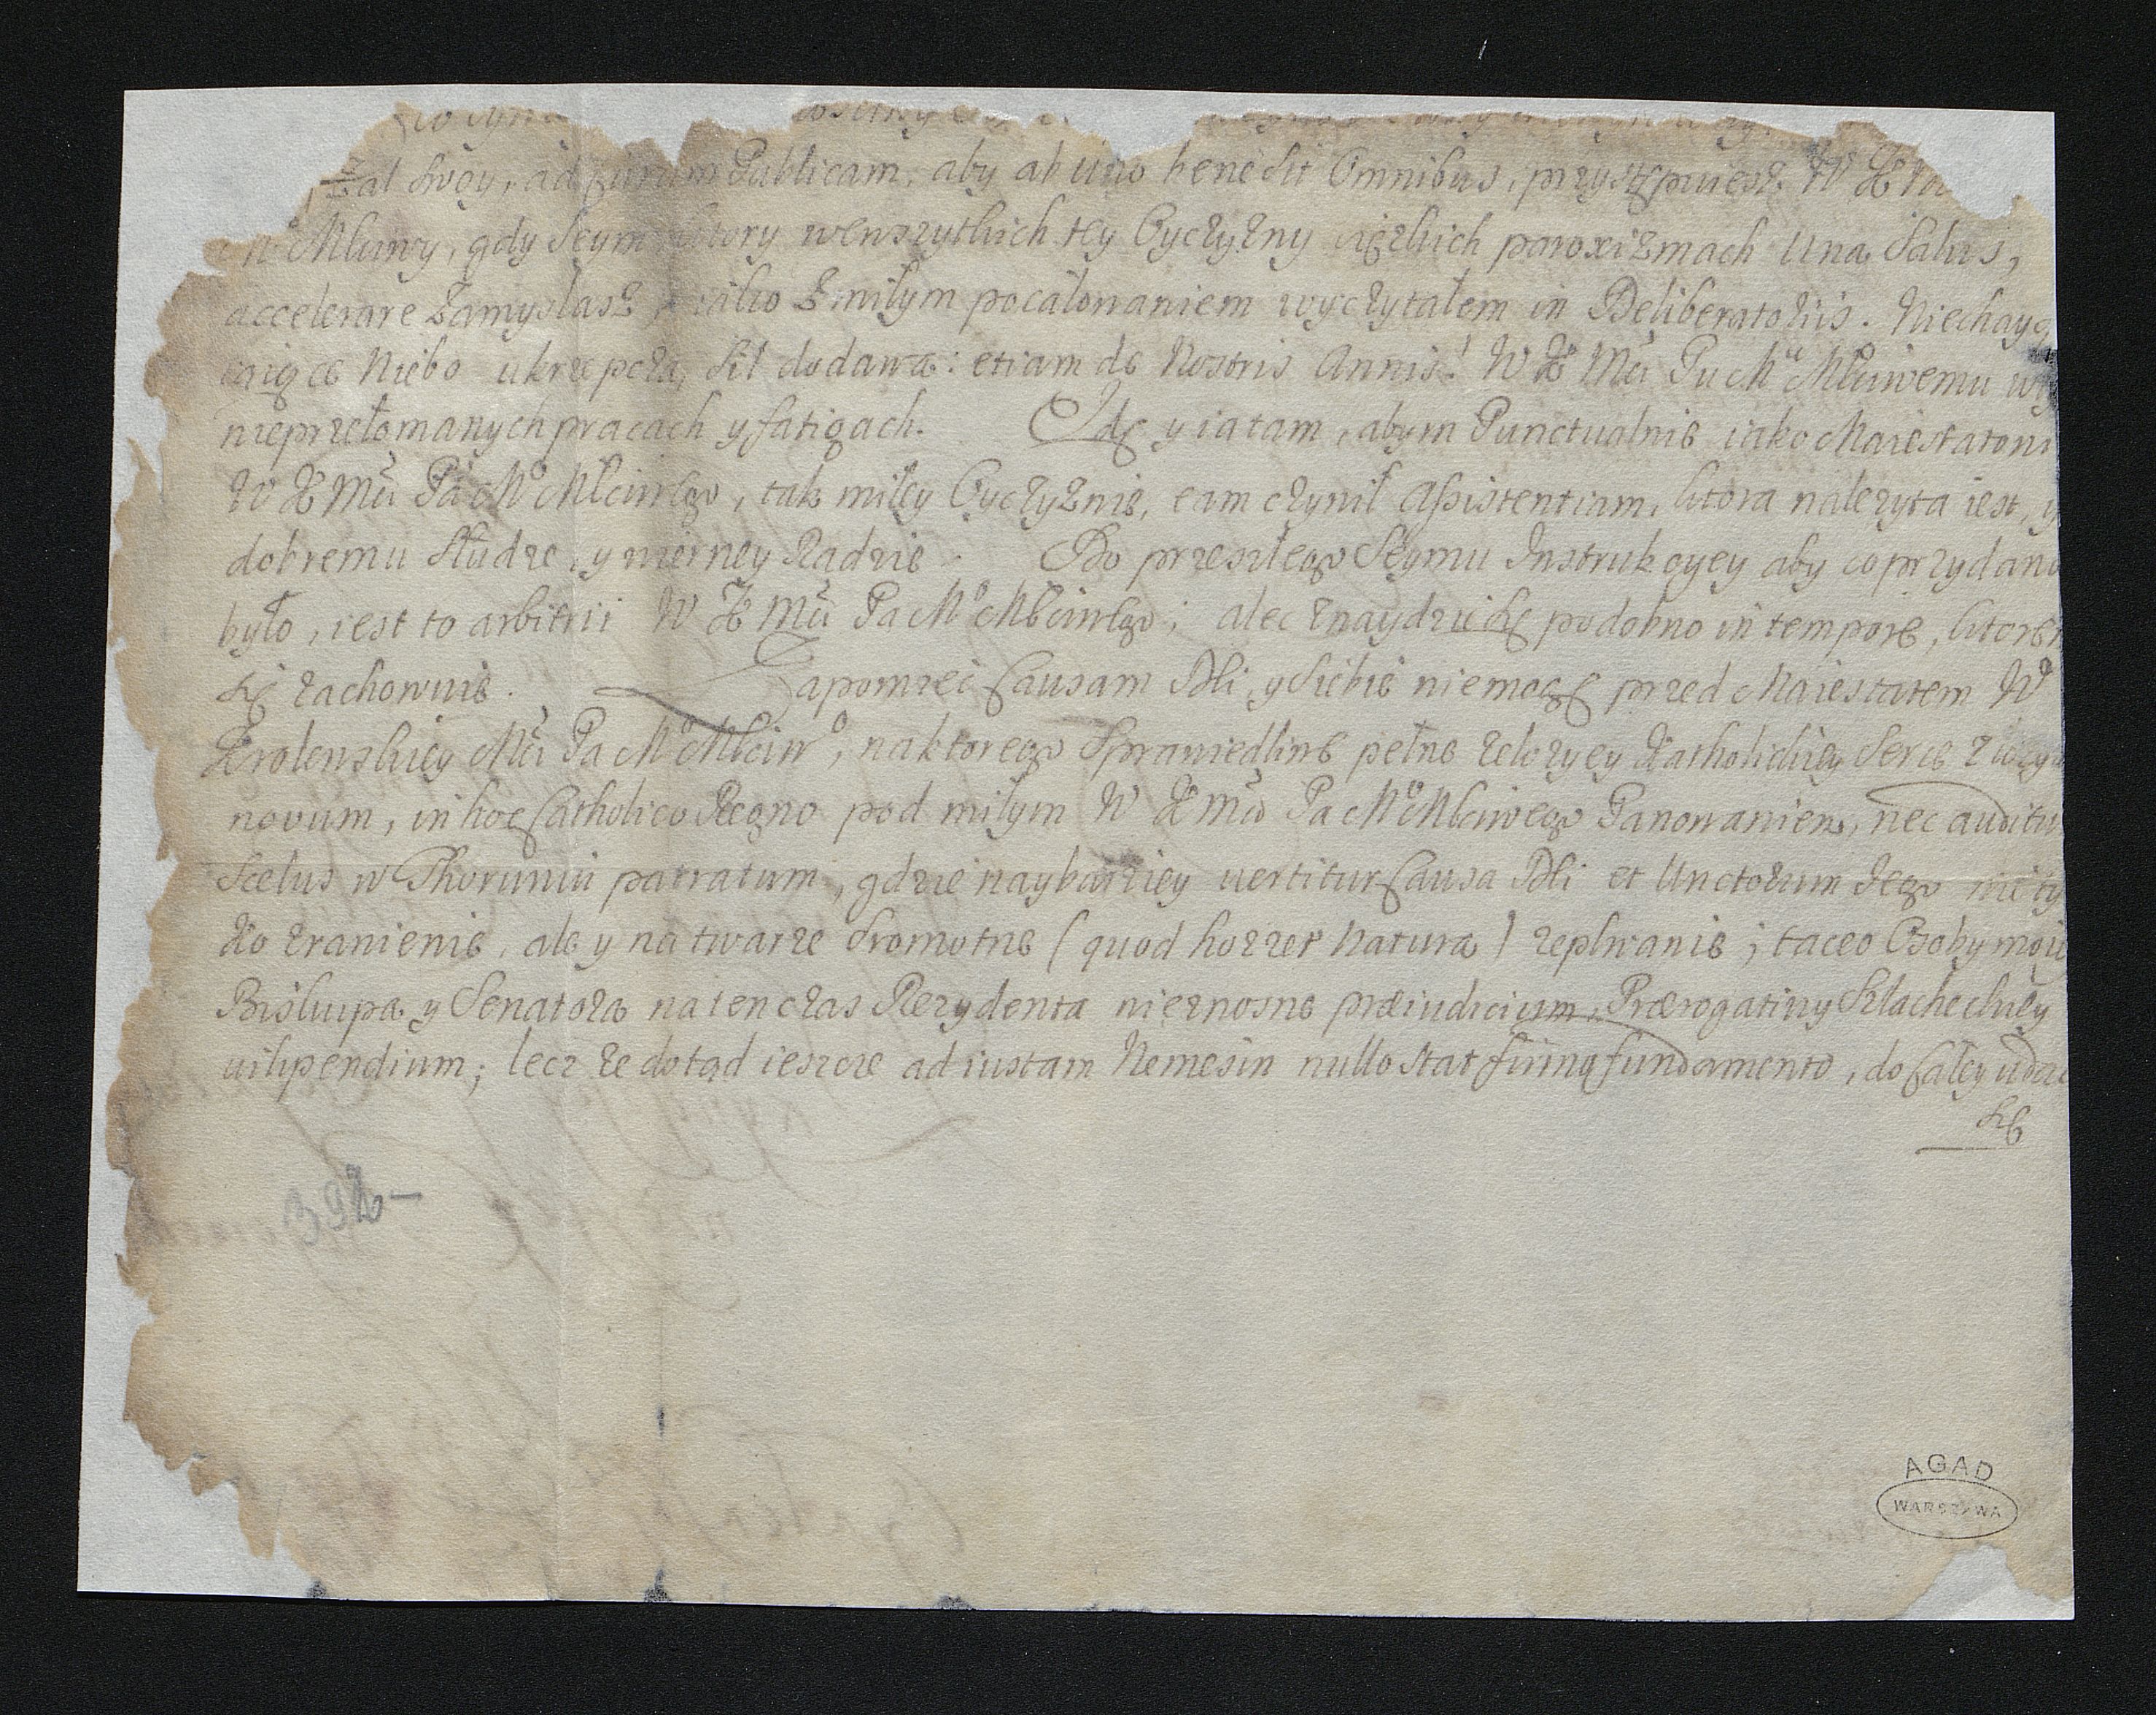 żal swoy, ad Publicam, aby ab uno bene sit Omnibus, przystępuiesz W K
Mº Mściwy, gdy Seym ktory wewszytkich tey Oyczyzny ciężkich paroxizmach una Salus,
accelerare zamyslasz, iako z miłym pocałowaniem wyczytałem in Deliberatoriis. Niechayg
Niebo ukrzepcza, sił dodawa: etiam de Nostris Annis! W K Mci Pu Mu Mściwemu w
nieprzełomanych pracach y fatigach. Idę y ia tam, abym Punctualnie iako Maiestatowi
W K Mci Pa Mº Mściwego, tak miłey Oyczyznie, eam czynił Assistentiam, ktora nalezyta iest, y
dobremu Słudze, y wierney Radzie. Do przeszłego Seymu Instrukcyey aby co przydano
było, iest to arbitrii W K Mci Pa Mº Mściwego; alec znaydzie się podobno in tempore, ktore
się zachowuie. Zapomnieć Causam Dei, y Siebie niemogę przed Maiestatem W
Krolewskiey Mci Pa Mº Mściwº, naktorego Sprawiedliwe pełne zelozyey Katholickiey Serce
novum, in hoc Catholico Regno pod miłym W K Mci Pa Mº Mściwego Panowaniem, nec auditu
Scelus w Thoruniu patratum, gdzie naybarziey vertitur Causa Dei et Unctorum Jego nie ty
ko zranienie, ale y na twarze sromotne (quod horret Natura) zeplwanie; taceo Osoby moiey
Biskupa y Senatora natenczas Rezydenta nieznosne præiudicium, Prærogatiwy Szlacheckiey
vilipendium; lecz ze dotąd ieszcze ad iustam Nemesin nullo stat firmo fundamento, do Całey udaię
się
392-
AGAD
WARSZAWA